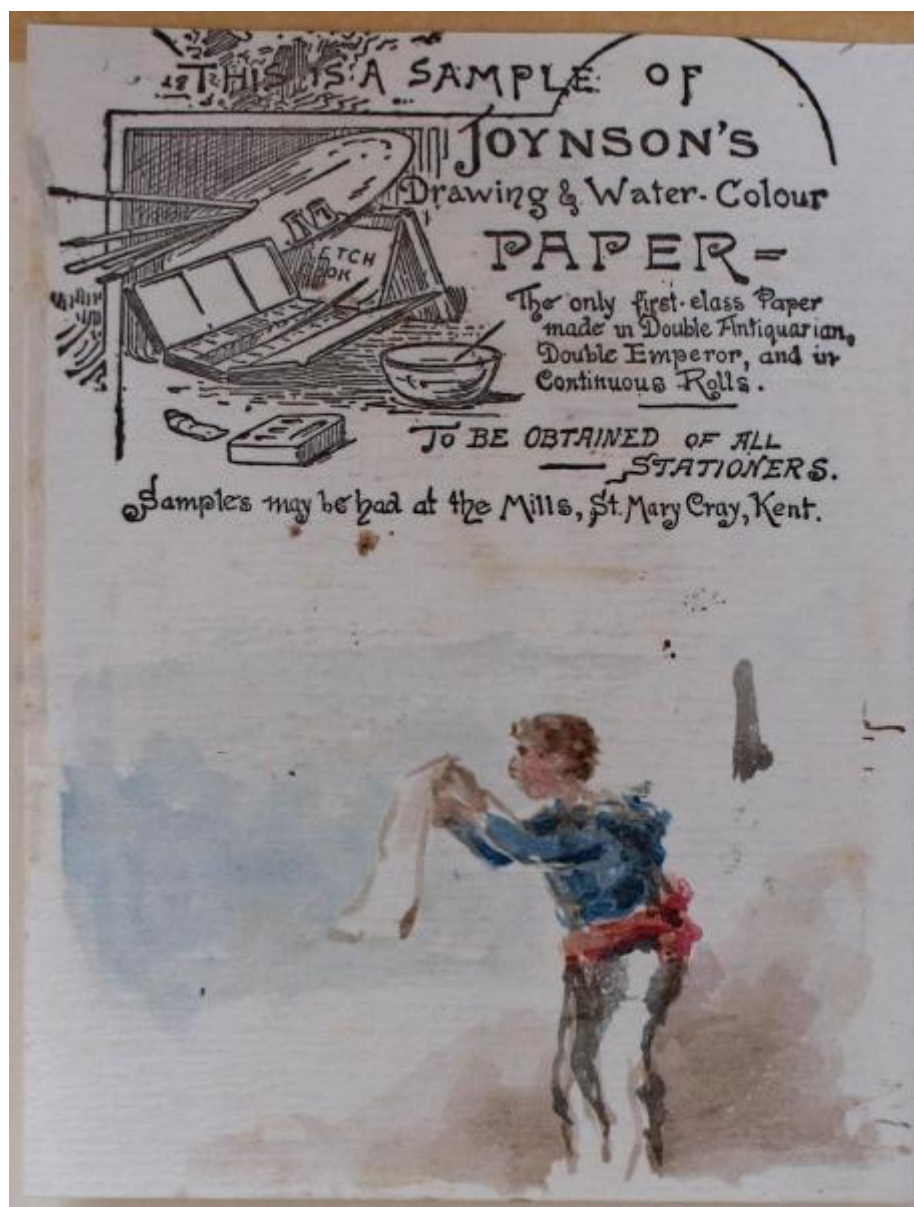 THIS IS A SAMPLE OF
JOYNSON'S
Drawing & Water-Colour
PAPER-
ETCH
OK
The only first-class Paper
made in Double Antiquarian,
Double Emperor, and in
Continuous Rolls.
TO BE OBTAINED OF ALL
STATIONERS.
Samples may be had at the Mills, St. Mary Cray, Kent.